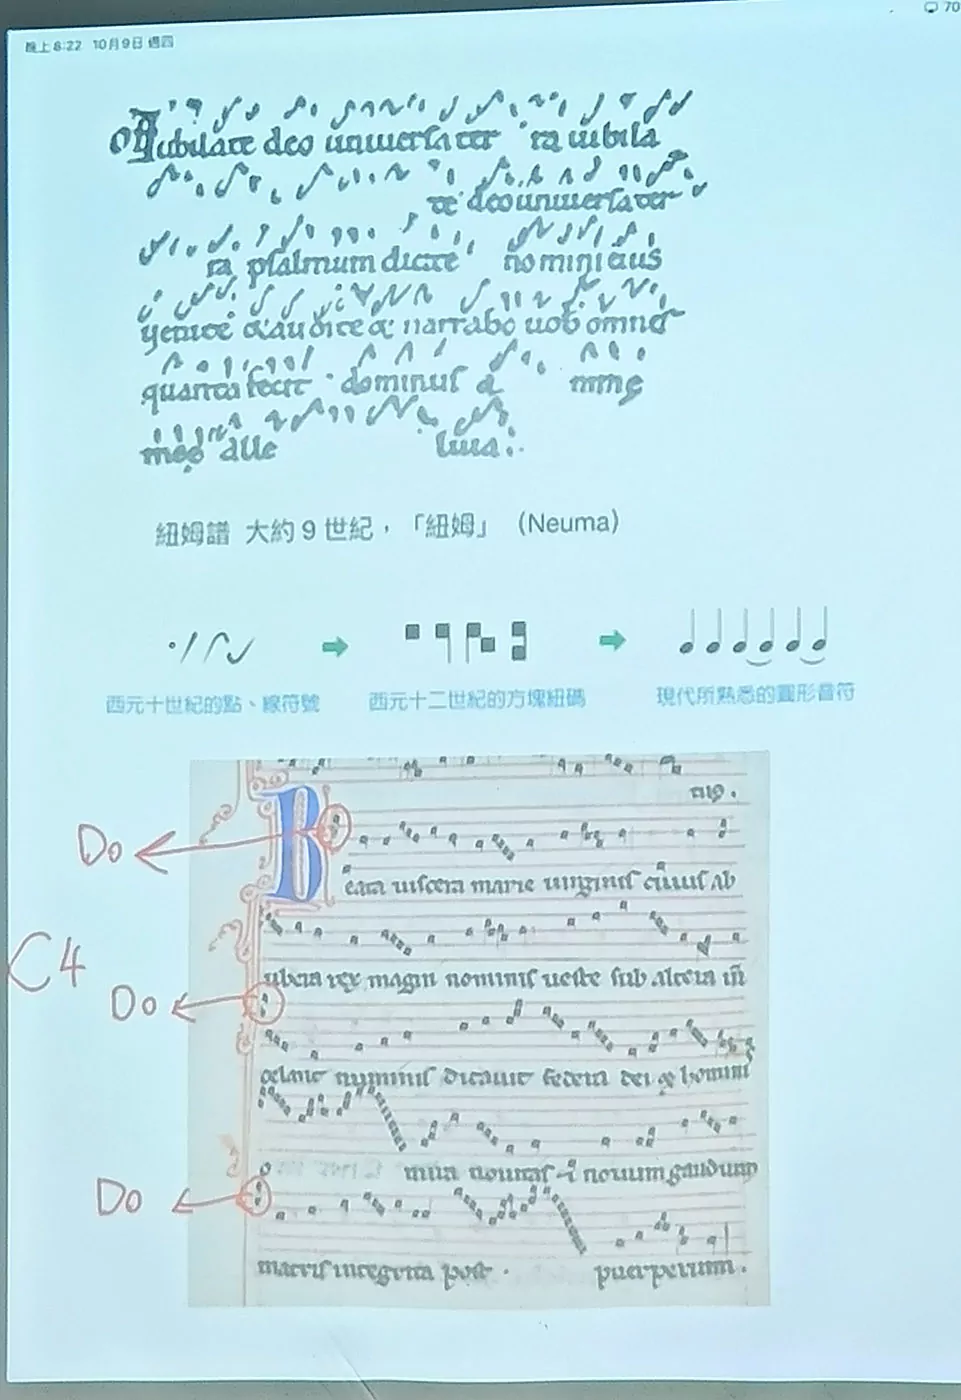 晚上8:22 10月9日 週四
70
Jubilate deo universa ter ra iubila
te deo universa ter
ra psalmum dicite nomini eius
venite & audite & narrabo vob omnes
quanta fecit dominus a nime
meę alle luia
紐姆譜 大約9世紀,「紐姆」 (Neuma)
西元十世紀的點、線符號
西元十二世紀的方塊紐碼
現代所熟悉的圓形音符
Do
Beata uiscera marie uirginis cuius ab
C4
ubera rex magni nominis ueste sub altera
Do
celans numinis dictauit federa dei & hominis
mira nouitas & nouum gaudium
Do
matris integrita post puerperium.